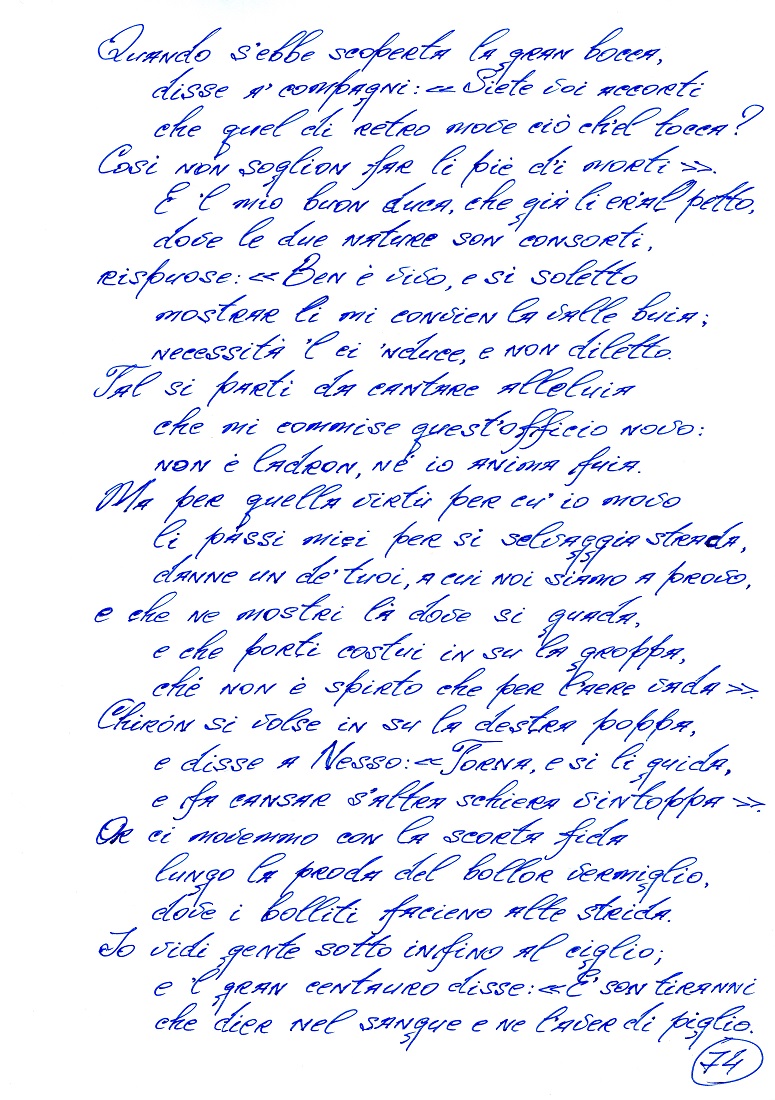 Quando s'ebbe scoperta la gran bocca,
disse a' compagni: « Siete voi accorti
che quel di retro move ciò ch'el tocca?
Così non soglion far li piè d'i morti ».
E 'l mio buon duca, che già li er'al petto,
dove le due nature son consorti,
rispuose: « Ben è vivo, e sì soletto
mostrar li mi convien la valle buia;
necessità 'l ci 'nduce, e non diletto.
Tal si partì da cantare alleluia
che mi commise quest'officio novo:
non è ladron, né io anima fuia.
Ma per quella virtù per cu' io movo
li passi miei per sì selvaggia strada,
danne un de' tuoi, a cui noi siamo a provo,
e che ne mostri là dove si guada,
e che porti costui in su la groppa,
ché non è spirto che per l'aere vada ».
Chirón si volse in su la destra poppa,
e disse a Nesso: « Torna, e sì li guida,
e fa cansar s'altra schiera v'intoppa ».
Or ci movemmo con la scorta fida
lungo la proda del bollor vermiglio,
dove i bolliti facieno alte strida.
Io vidi gente sotto infino al ciglio;
e 'l gran centauro disse: « E' son tiranni
che dier nel sangue e ne l'aver di piglio.
74